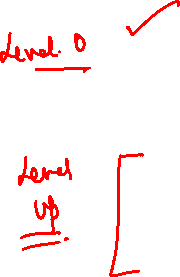 Level 0
Level
up